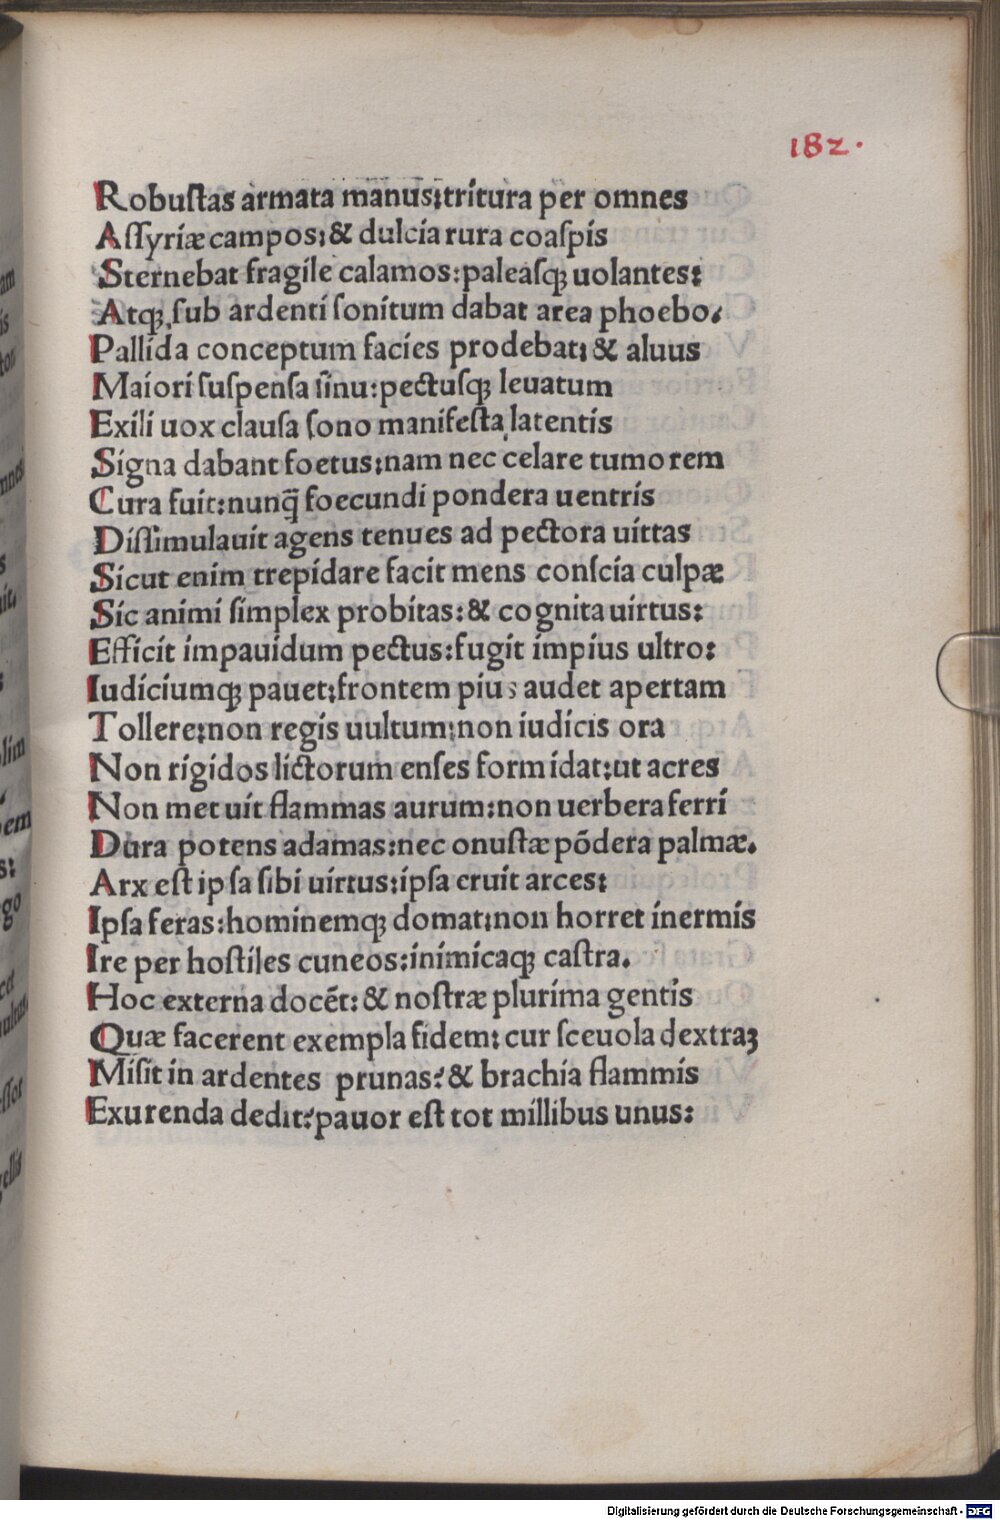 182.
Robuſtas armata manus:tritura per omnes
Aſſyriæ campos:& dulcia rura coaſpis
Sternebat fragile calamos:paleaſqꝫ uolantes:
Atqꝫ ſub ardenti ſonitum dabat area phoebo.
Pallida conceptum facies prodebat:& aluus
Maiori ſuſpenſa ſinu:pectuſqꝫ leuatum
Exili uox clauſa ſono manifeſta latentis
Signa dabant foetus:nam nec celare tumorem
Cura fuit:nunq̃ foecundi pondera uentris
Diſſimulauit agens tenues ad pectora uittas
Sicut enim trepidare facit mens conſcia culpæ
Sic animi ſimplex probitas:& cognita uirtus:
Efficit impauidum pectus:fugit impius ultro:
Iudiciumqꝫ pauet:frontem pius audet apertam
Tollere:non regis uultum:non iudicis ora
Non rigidos lictorum enſes formidat:ut acres
Non metuit flammas aurum:non uerbera ferri
Dura potens adamas:nec onuſtæ põdera palmæ.
Arx eſt ipſa ſibi uirtus:ipſa eruit arces:
Ipſa feras:hominemqꝫ domat:non horret inermis
Ire per hoſtiles cuneos:inimicaqꝫ caſtra.
Hoc externa docẽt:& noſtræ plurima gentis
Quæ facerent exempla fidem: cur ſceuola dextraꝫ
Miſit in ardentes prunas:& brachia flammis
Exurenda dedit:pauor eſt tot millibus unus:
Digitalisierung gefördert durch die Deutsche Forschungsgemeinschaft - DFG